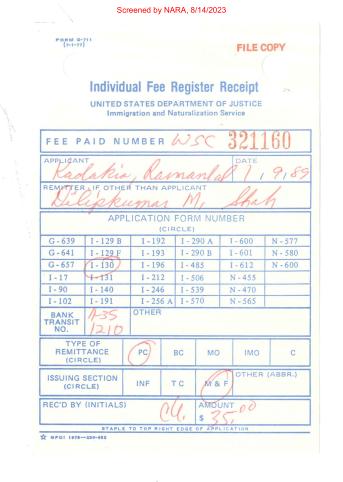 Screened by NARA, 8/14/2023
FORM G-711
(7-1-77)
FILE COPY
Individual Fee Register Receipt
UNITED STATES DEPARTMENT OF JUSTICE
Immigration and Naturalization Service
FEE PAID NUMBER WSC 321160
APPLICANT DATE
Kadakia, Ramanlal 1,9,89
REMITTER, IF OTHER THAN APPLICANT
Dilipkumar M. Shah
APPLICATION FORM NUMBER
(CIRCLE)
G-639 I-129 B I-192 I-290 A I-600 N-577
G-641 I-129 F I-193 I-290 B I-601 N-580
G-657 I-130 I-196 I-485 I-612 N-600
I-17 I-131 I-212 I-506 N-455
I-90 I-140 I-246 I-539 N-470
I-102 I-191 I-256 A I-570 N-565
BANK TRANSIT NO. OTHER
1210
TYPE OF REMITTANCE (CIRCLE) PC BC MO IMO C
ISSUING SECTION (CIRCLE) INF TC M & F OTHER (ABBR.)
REC'D BY (INITIALS) AMOUNT
$ 35.00
STAPLE TO TOP RIGHT EDGE OF APPLICATION